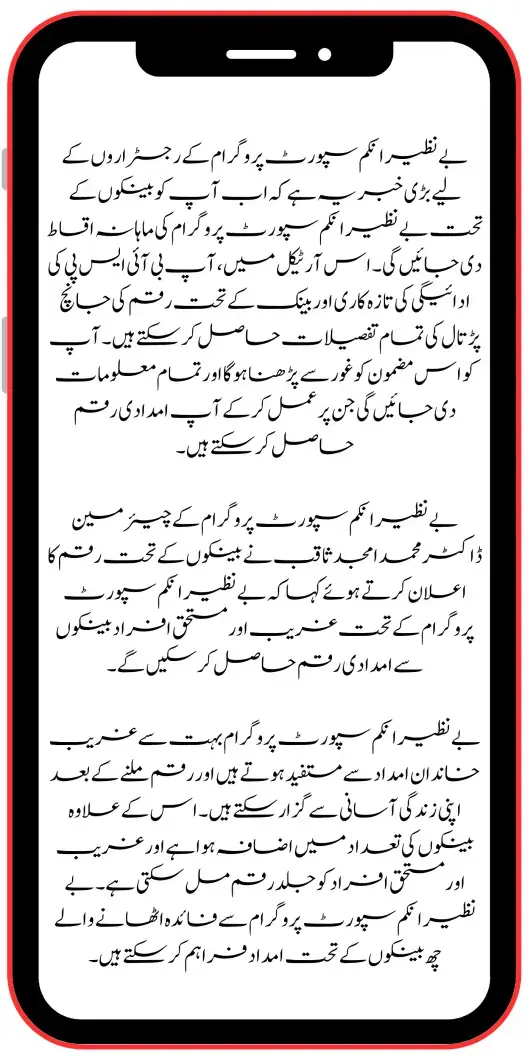 بے نظیر انکم سپورٹ پروگرام کے رجسٹراروں کے
لیے بڑی خبر یہ ہے کہ اب آپ کو بینکوں کے
تحت بے نظیر انکم سپورٹ پروگرام کی ماہانہ اقساط
دی جائیں گی۔ اس آرٹیکل میں، آپ بی آئی ایس پی کی
ادائیگی کی تازہ کاری اور بینک کے تحت رقم کی جانچ
پڑتال کی تمام تفصیلات حاصل کر سکتے ہیں۔ آپ
کو اس مضمون کو غور سے پڑھنا ہوگا اور تمام معلومات
دی جائیں گی جن پر عمل کر کے آپ امدادی رقم
حاصل کر سکتے ہیں۔
بے نظیر انکم سپورٹ پروگرام کے چیئرمین
ڈاکٹر محمد امجد ثاقب نے بینکوں کے تحت رقم کا
اعلان کرتے ہوئے کہا کہ بے نظیر انکم سپورٹ
پروگرام کے تحت غریب اور مستحق افراد بینکوں
سے امدادی رقم حاصل کر سکیں گے۔
بے نظیر انکم سپورٹ پروگرام بہت سے غریب
خاندان امداد سے مستفید ہوتے ہیں اور رقم ملنے کے بعد
اپنی زندگی آسانی سے گزار سکتے ہیں۔ اس کے علاوہ
بینکوں کی تعداد میں اضافہ ہوا ہے اور غریب
اور مستحق افراد کو جلد رقم مل سکتی ہے۔ بے
نظیر انکم سپورٹ پروگرام سے فائدہ اٹھانے والے
چھ بینکوں کے تحت امداد فراہم کر سکتے ہیں۔